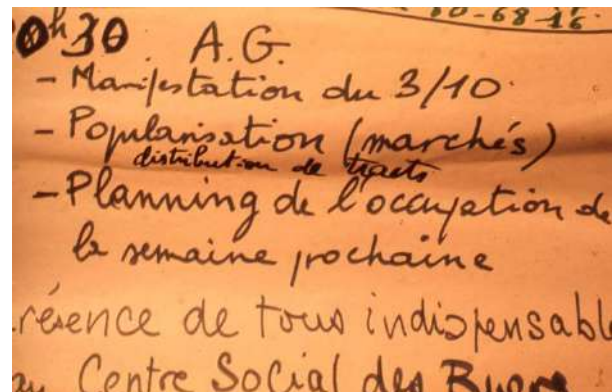 0h30 A.G.
- Manifestation du 3/10.
- Popularisation (marchés)
distribution de tracts
- Planning de l'occupation de
la semaine prochaine
résence de tous indispensable
au Centre Social des